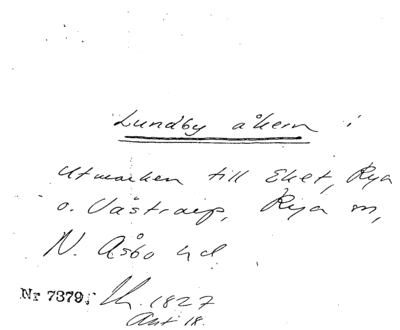 Lundby åkern i
Utmarken till Eket, Rya
o. Västraep, Rya sn,
N. Åsbo hd
Nr 7379. Lh. 1827
Akt 18.